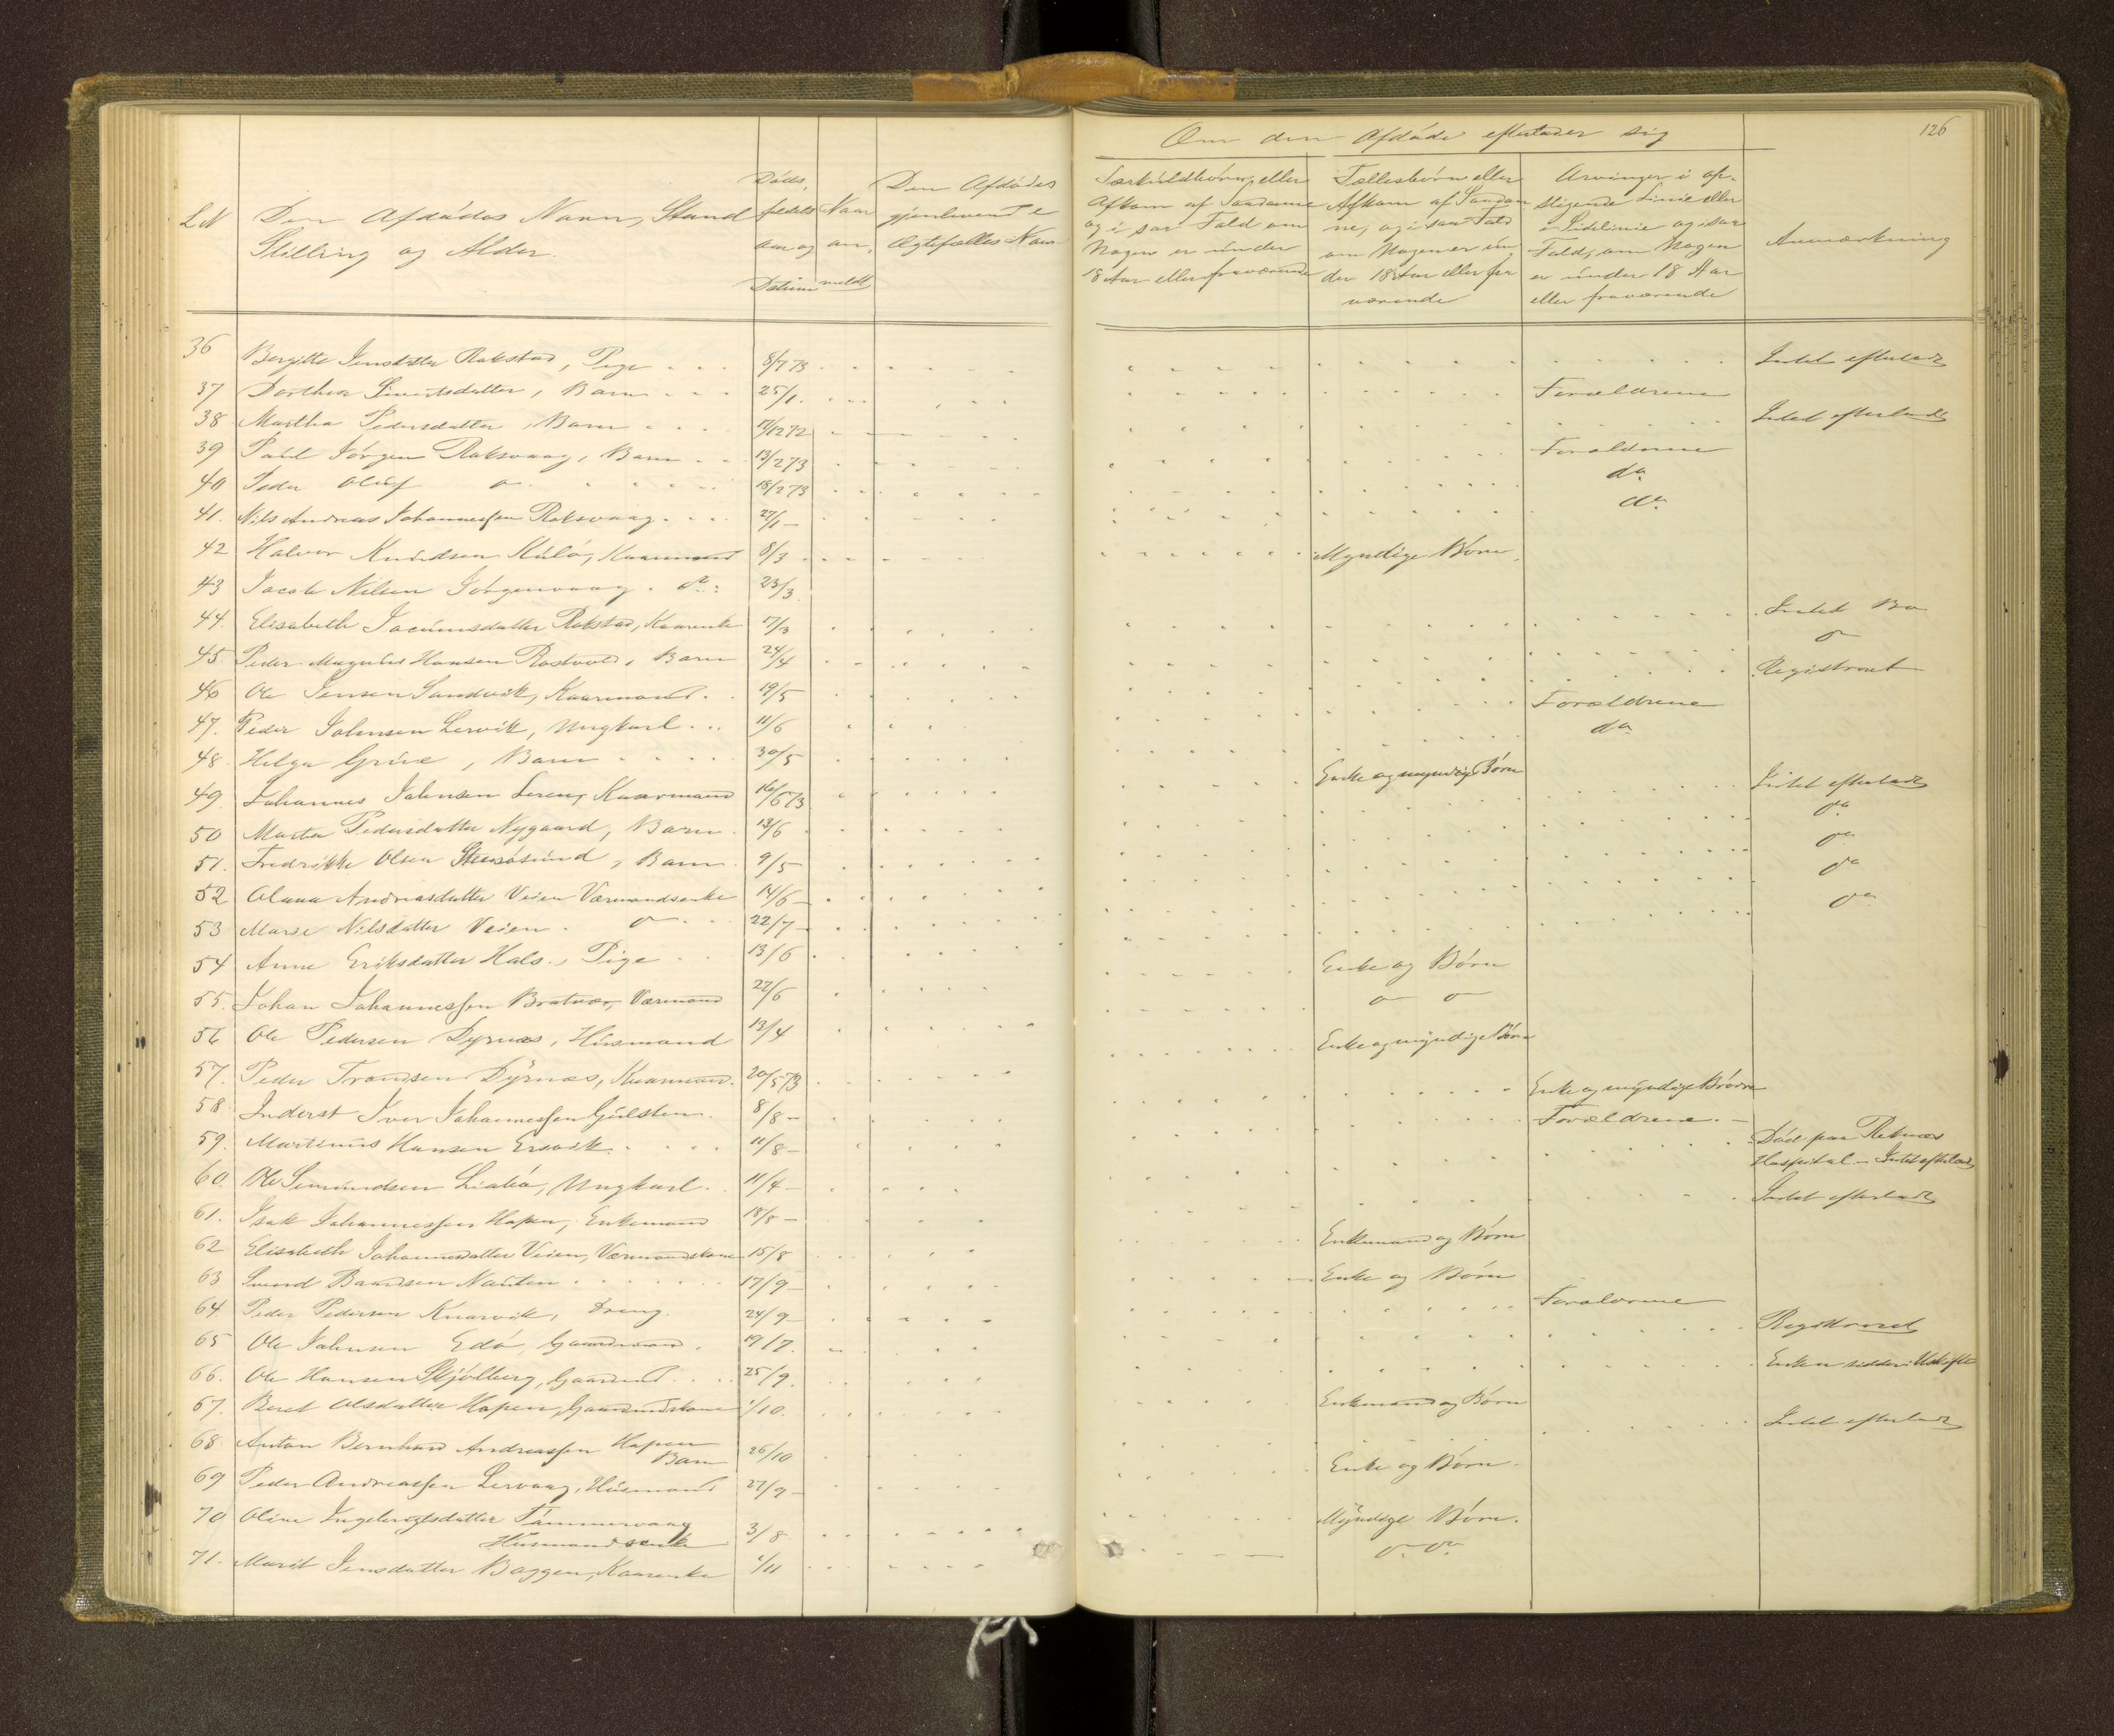 126
Om den Afdøde efterlader sig
L. N
Den Afdødes Navn, Stand
Stilling og Alder.
Døds,
fældets
Datum
Naar
an,
meldt
Den Afdødes
gjenlevende
Ægtefælles Navn
Særkuldbørn, eller
Afkom af Saadanne
og i saa Fald om
Nogen er under
18 Aar eller fraværende
Fællesbørn eller
Afkom af Saadan
ne, og i saa Fald
om Nogen er un
der 18 Aar eller fra
værende
Arvinger i op-
stigende Linie eller
i Sidelinie og i saa
Fald, om Nogen
er under 18 Aar
eller fraværende
Anmærkning
36 Bergitte Jensdatter Rokstad, Pige 8/7 73 Intet efterladt
37 Dorthea Sivertsdatter, Barn 25/1. Forældrene
38 Martha Pedersdatter, Barn /12 72 Intet efterladt
39 Paul Jørgen Roksvaag, Barn 13/2 73 Forældrene
40 Peder Oluf do 18/2 73 do
41. Nils Andreas Johannessen Roksvaag 27/1 - do
42 Halvor Knudsen Kulø, Kaarmand 8/3 Myndige Børn.
43 Jacob Nilsen Jørgenvaag do 23/3
44. Elisabeth Jocumsdatter Rokstad, Kaarenke 17/3 Intet Bo
45 Peder Magnus Hansen Rostvold, Barn 24/4 do
46 Ole Jensen Sandvik, Kaarmand 19/5 Registreret
47. Peder Johnsen Lervik, Ungkarl 11/6 Forældrene
48. Helga Grüe, Barn 30/5 do
49. Johannes Johnsen Leren, Kaarmand 16/5 73 Enke og myndige Børn
50 Marta Pedersdatter Nygaard, Barn 13/6 Intet efterladt
51. Fredrikke Olsen, Barn 9/5 do
52 Olava Andreasdatter Veien Værmandsenke 14/6 - do
53 Marie Nilsdatter Veien do 22/7 - do
54 Anne Eriksdatter Hals, Pige 13/6 do
55. Johan Johannessen Bratvær, Værmand 22/6 Enke og Børn
56 Ole Pedersen Dyrnæs, Husmand 13/4 do do
57. Peder Trondsen Dyrnæs, Kaarmand. 20/5 73 Enke og myndige Børn
58. Inderst Iver Johannessen Gulsten 8/8 - Enke og myndige Brødre
59. Martinus Hansen Ersvik 11/8 - Forældrene. -
60. Ole Simundsen Liabø, Ungkarl 11/4 - Død paa Reknæs
Hospital - Intet efterladt
61. Isak Johannessen Hopen, Enkemand 18/8 - Intet efterladt
62 Elisabeth Johannesdatter Veien, Værmandskone 15/8 Enkemand og Børn
63 Svend Baardsen Nausten 17/9 - Enke og Børn
64 Peder Pedersen Knarvik, Dreng. 24/9 - Forældrene
65 Ole Johnsen Edø, Gaardmand. 19/7. Registreret
66. Ole Hansen Skjølberg, Gaardmd. 25/9. Enken sidder i Uskifte
67. Beret Olsdatter Hopen, Gaardmdskone /10. Enkemand og Børn
68. Anton Bernhard Andreassen Hopen
Barn 26/10 Intet efterladt
69 Peder Andreassen Lervaag, Husmand 27/9 - Enke og Børn.
70 Oline Ingebrigtsdatter Tømmervaag
Husmandsenke 3/8. Myndige Børn.
71. Marit Jensdatter Baggen, Kaarenke /11 do do